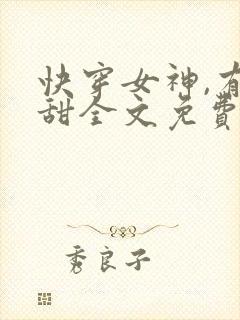 快穿女神,有
甜全文免費
秀良子